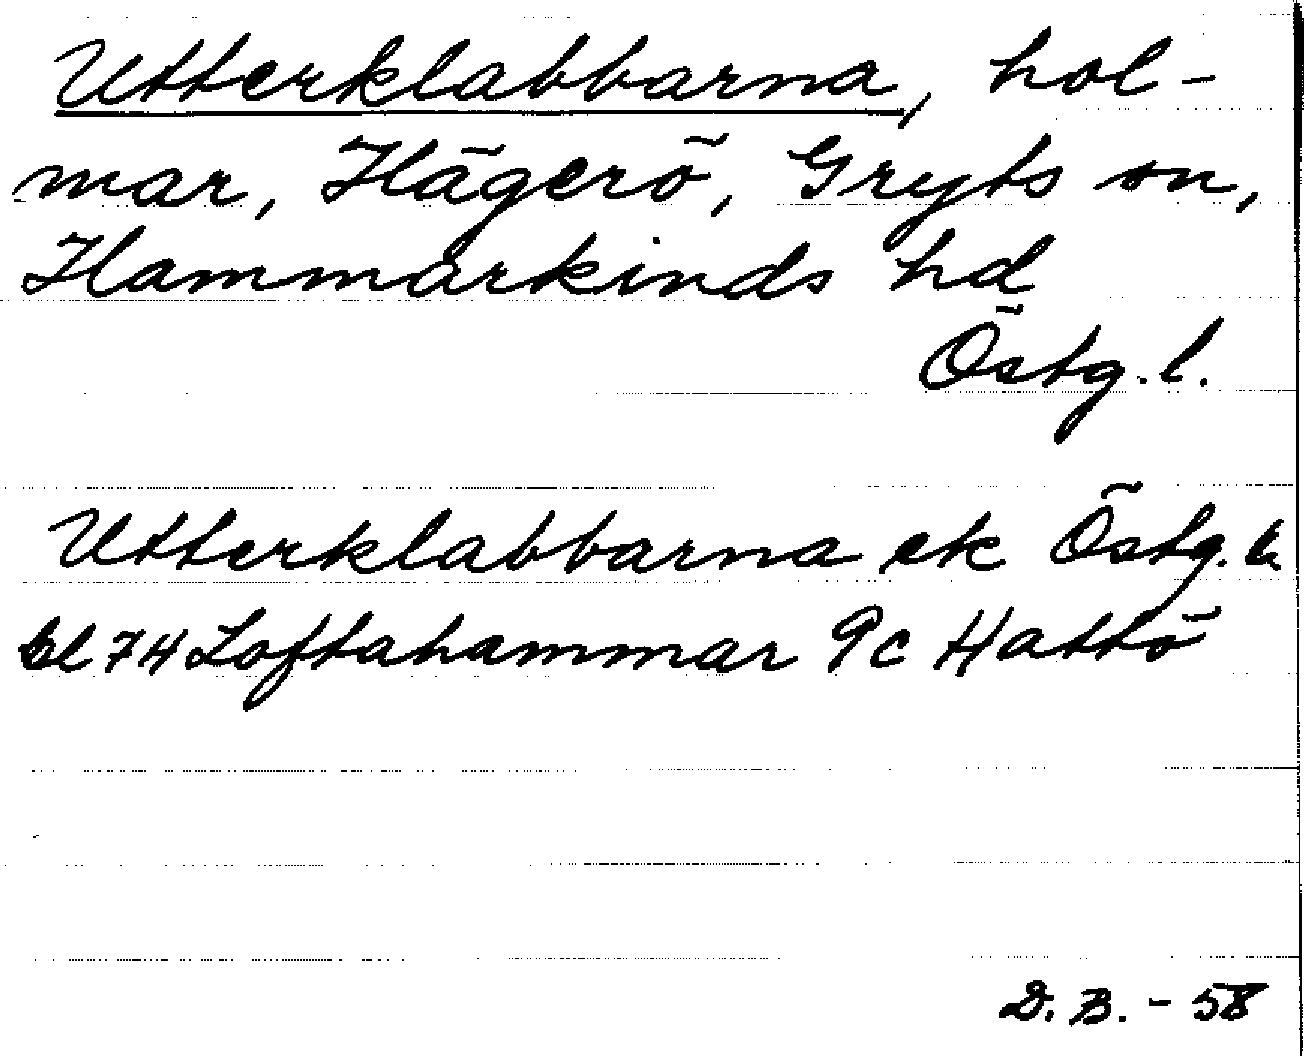 Utterklabbarna, hol-
mar, Hägerö, Gryts sn,
Hammarkinds hd
Östg. l.
Utterklabbarna ek Östg. l.
bl 74 Loftahammar 9c Hattö
D. B. - 58